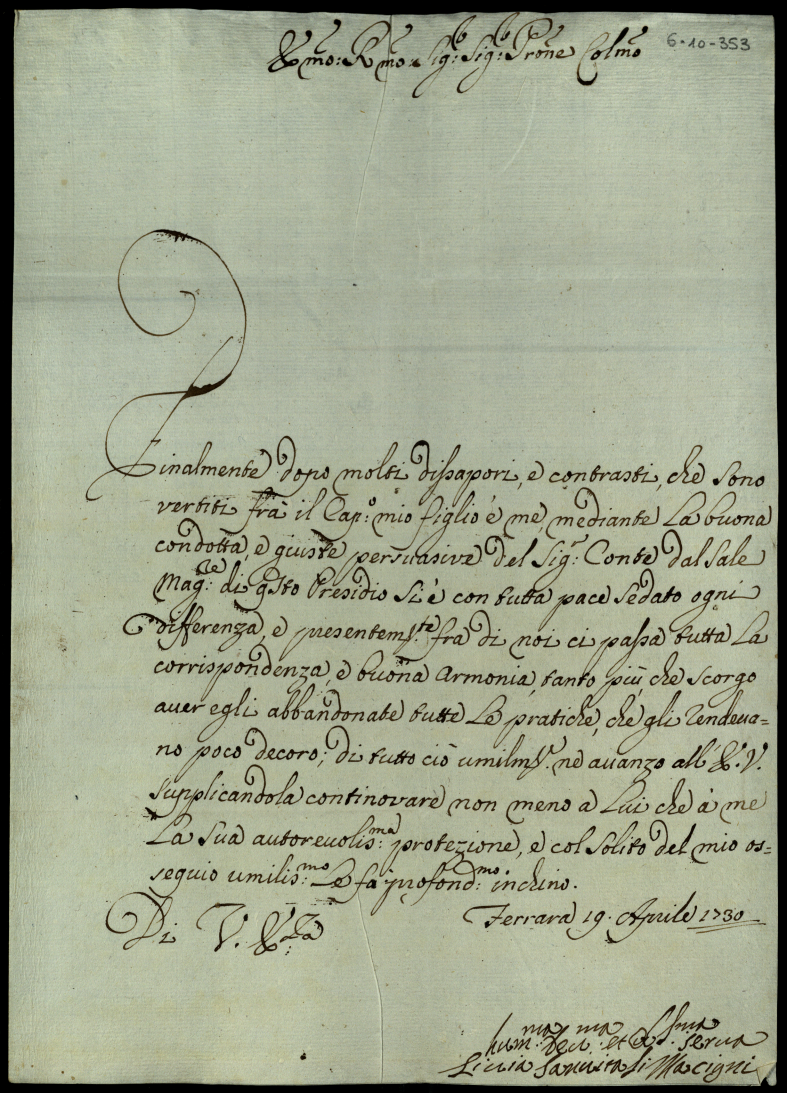 6-10-353
Emo: Rmo: Sig:r Sig:r Prone Colmo
Finalmente dopo molti dissapori, e contrasti, che sono
vertiti frà il Cap:o mio figlio è me, mediante La buona
condotta, e giuste persuasive del Sig:r Conte dal Sale
Mag:re di qsto Presidio si è con tutta pace sedato ogni
differenza, e presentem:te frà di noi ci passa tutta La
corrispondenza, e buona armonia, tanto più che scorgo
aver egli abbandonate tutte Le pratiche, che gli rendeva=
no poco decoro; di tutto ciò umilm:te ne avanzo all' E.V.
supplicandola continovare non meno a Lui che à me
La sua autorevolis:ma protezione, e col solito del mio os=
sequio umilis:mo Le fà profond:mo inchino.
Di V. Eza
Ferrara 19. Aprile 1730
hum:ma dev:ma et serva
Licinia Sanvitali Macigni